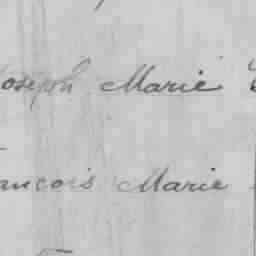 Joseph Marie
François Marie